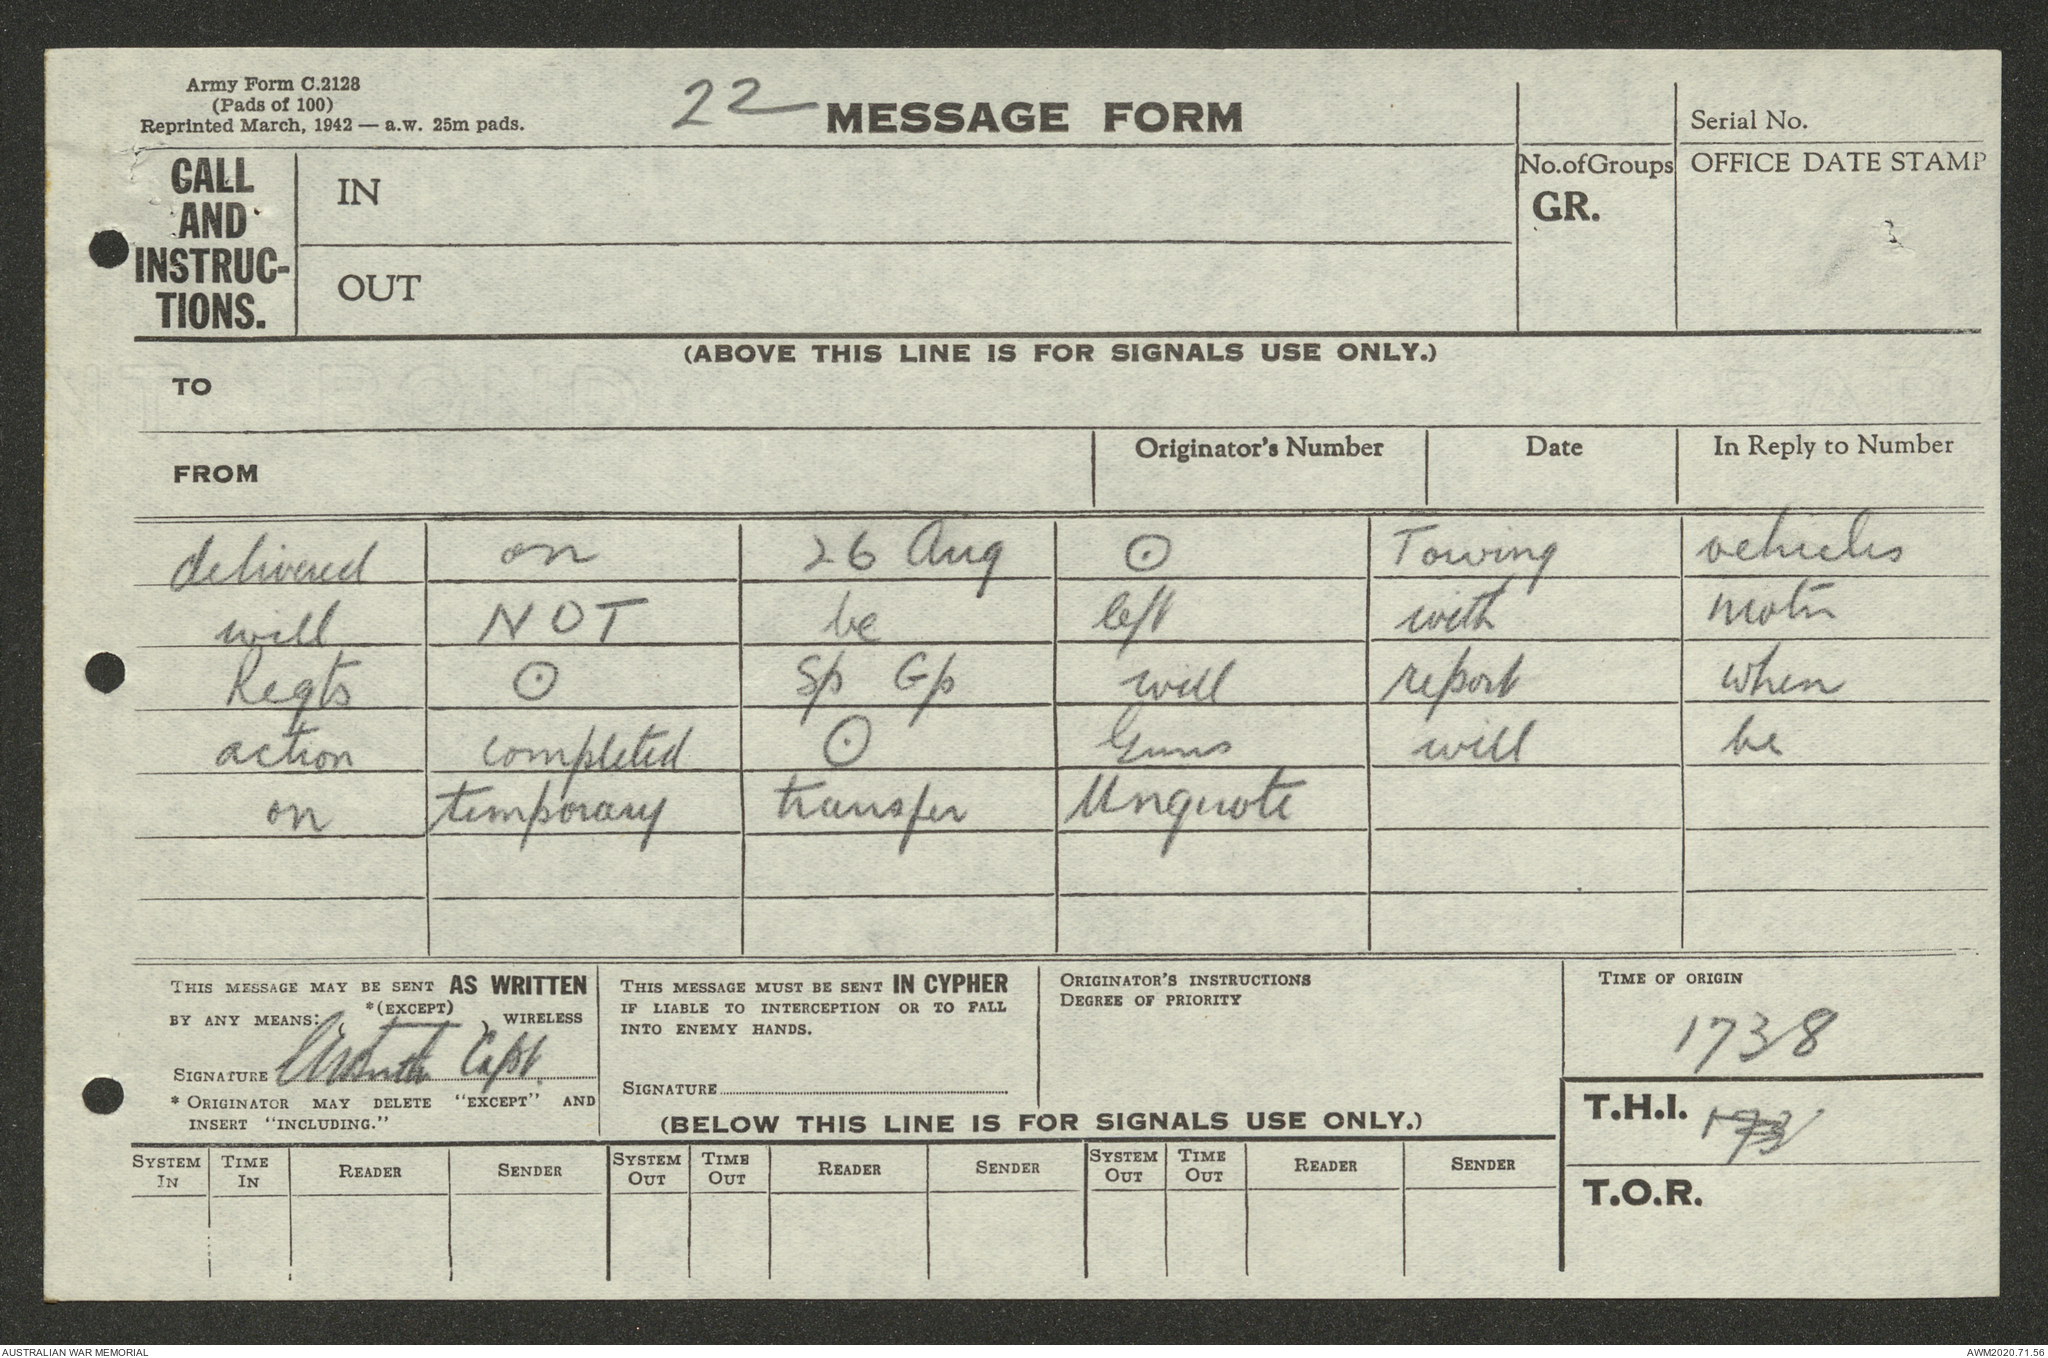 Army Form C.2128
(Pads of 100)
Reprinted March, 1942 — a.w. 25m pads.
22 MESSAGE FORM
Serial No.
CALL AND INSTRUC-TIONS.
IN
OUT
No. of Groups
GR.
OFFICE DATE STAMP
(ABOVE THIS LINE IS FOR SIGNALS USE ONLY.)
TO
FROM
Originator's Number
Date
In Reply to Number
delivered on 26 Aug ⊙ Towing vehicles
will NOT be left with motor
Regts ⊙ Sp Gp will report when
action completed ⊙ Guns will be
on temporary transfer Unquote
THIS MESSAGE MAY BE SENT AS WRITTEN
BY ANY MEANS: *(EXCEPT) WIRELESS
SIGNATURE Capt.
* ORIGINATOR MAY DELETE "EXCEPT" AND
INSERT "INCLUDING."
THIS MESSAGE MUST BE SENT IN CYPHER
IF LIABLE TO INTERCEPTION OR TO FALL
INTO ENEMY HANDS.
SIGNATURE
ORIGINATOR'S INSTRUCTIONS
DEGREE OF PRIORITY
TIME OF ORIGIN
1738
T.H.I.
T.O.R.
(BELOW THIS LINE IS FOR SIGNALS USE ONLY.)
SYSTEM IN
TIME IN
READER
SENDER
SYSTEM OUT
TIME OUT
READER
SENDER
SYSTEM OUT
TIME OUT
READER
SENDER
AUSTRALIAN WAR MEMORIAL
AWM2020.71.56